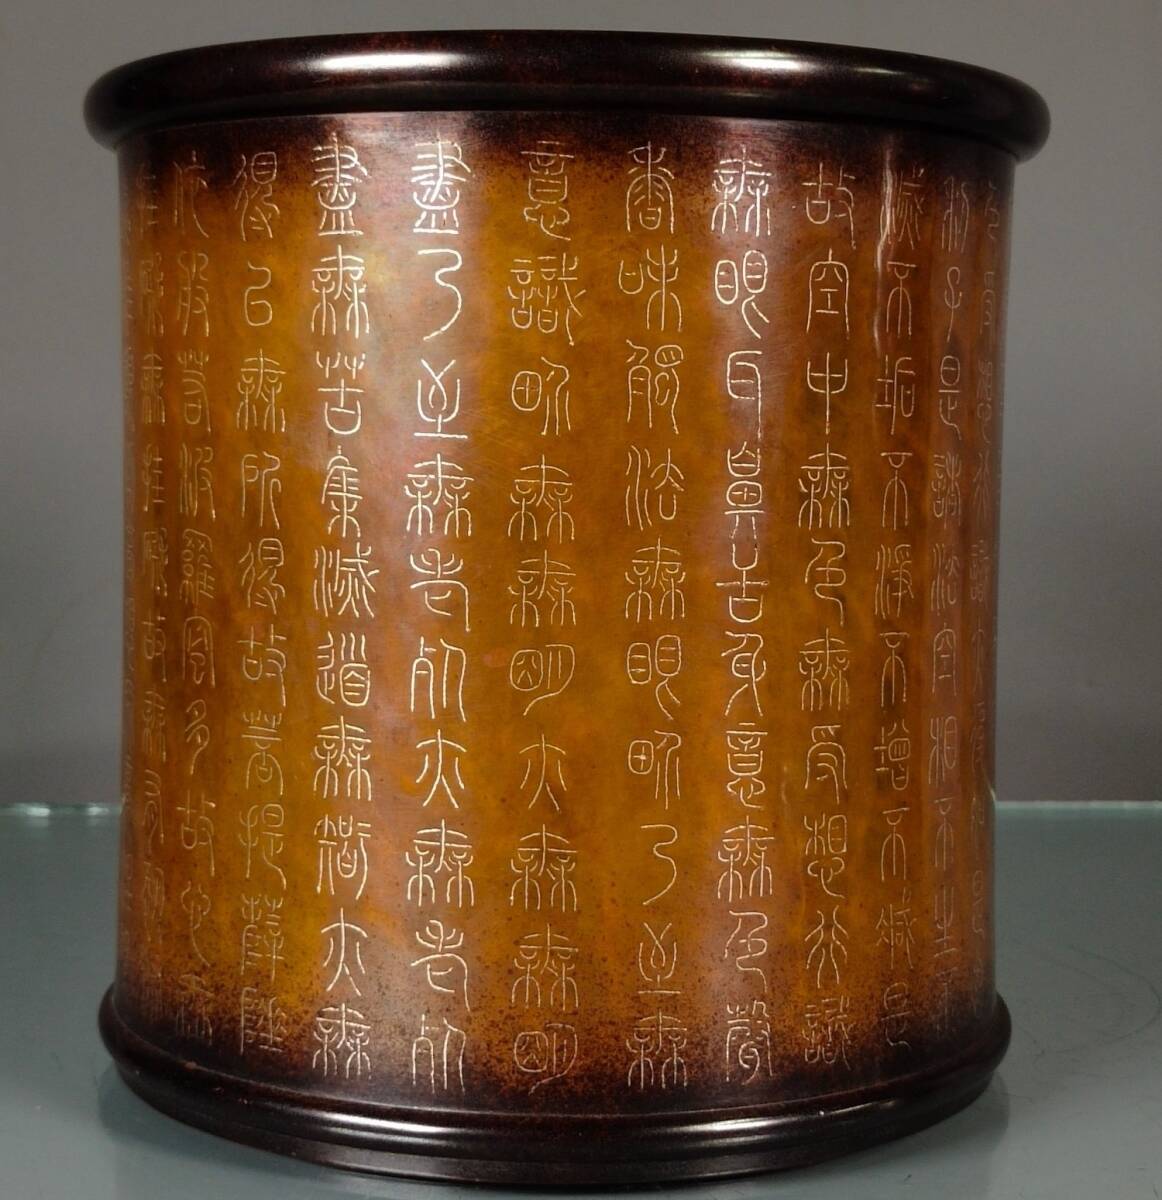 色受想行識亦復如是舍
利子是諸法空相不生不
滅不垢不淨不增不減是
故空中無色無受想行識
無眼耳鼻舌身意無色聲
香味觸法無眼界乃至無
意識界無無明亦無無明
盡乃至無老死亦無老死
盡無苦集滅道無智亦無
得以無所得故菩提薩埵
依般若波羅蜜多故心無
罣礙無罣礙故無有恐怖